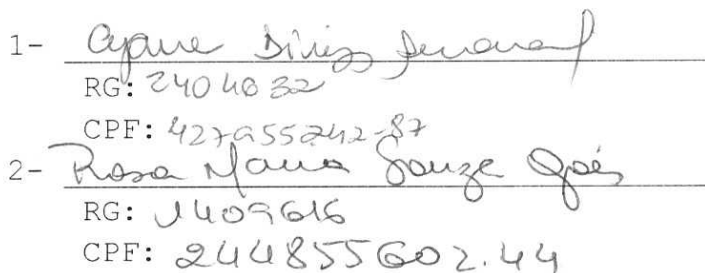 1-
RG: 2404032
CPF: 427955242-87
2- Rosa Maria Souza Goés
RG: 1409616
CPF: 244855602.44